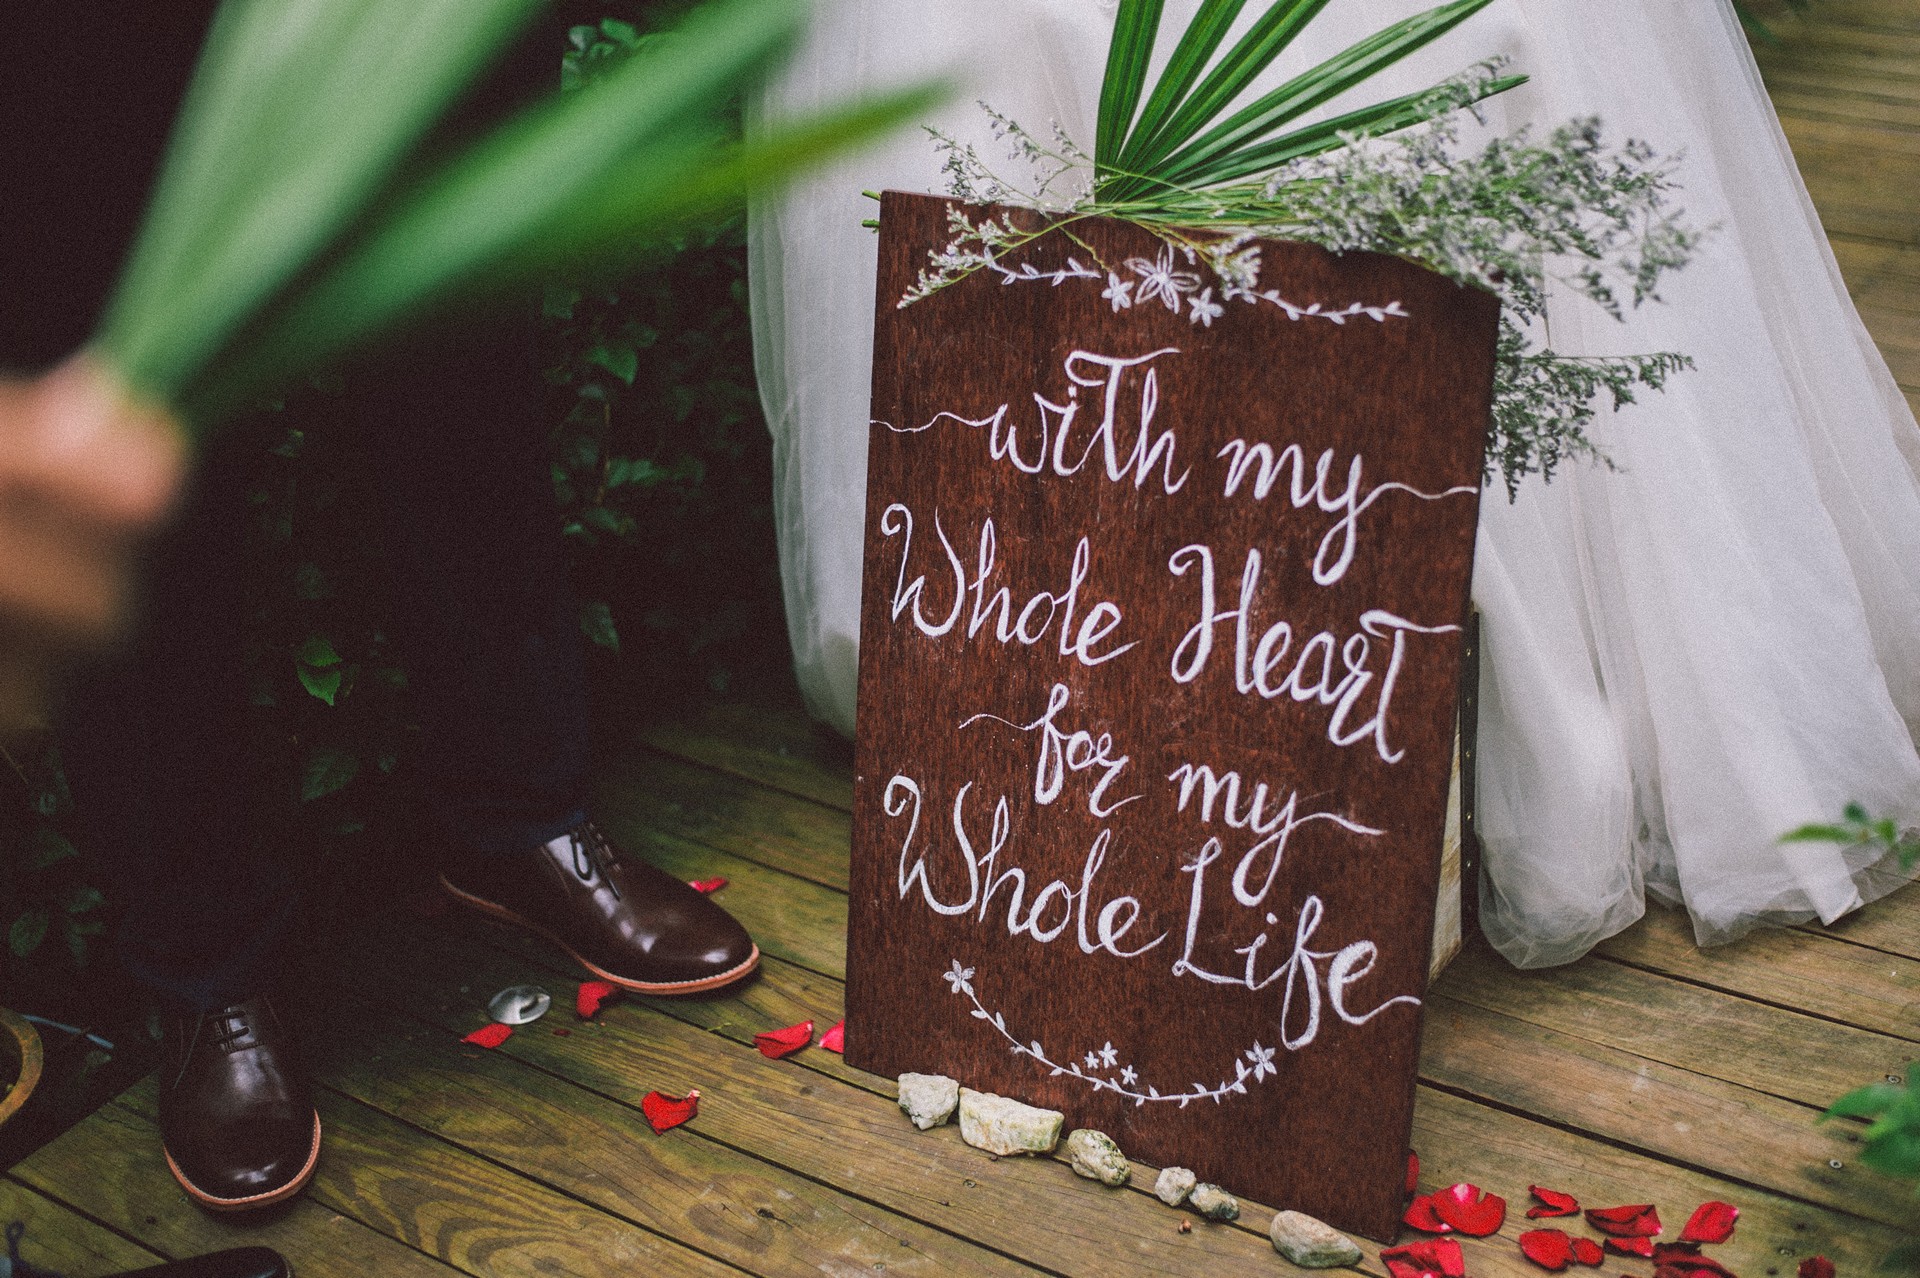 with my
Whole Heart
for my
Whole Life